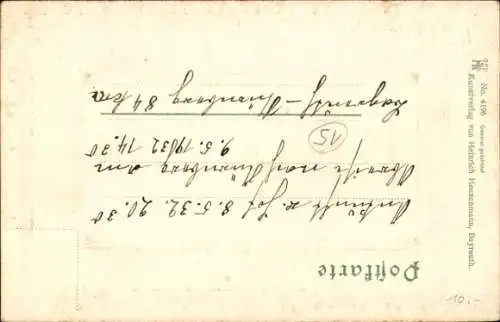 Postkarte
Ankunft v. Hof 8.5.32. 20.30
Abreise nach Nürnberg am
9.5.1932 14.30
Bayreuth – Nürnberg 84 km
15
No. 4196
Kunstverlag von Heinrich Heuschmann, Bayreuth.
10.-